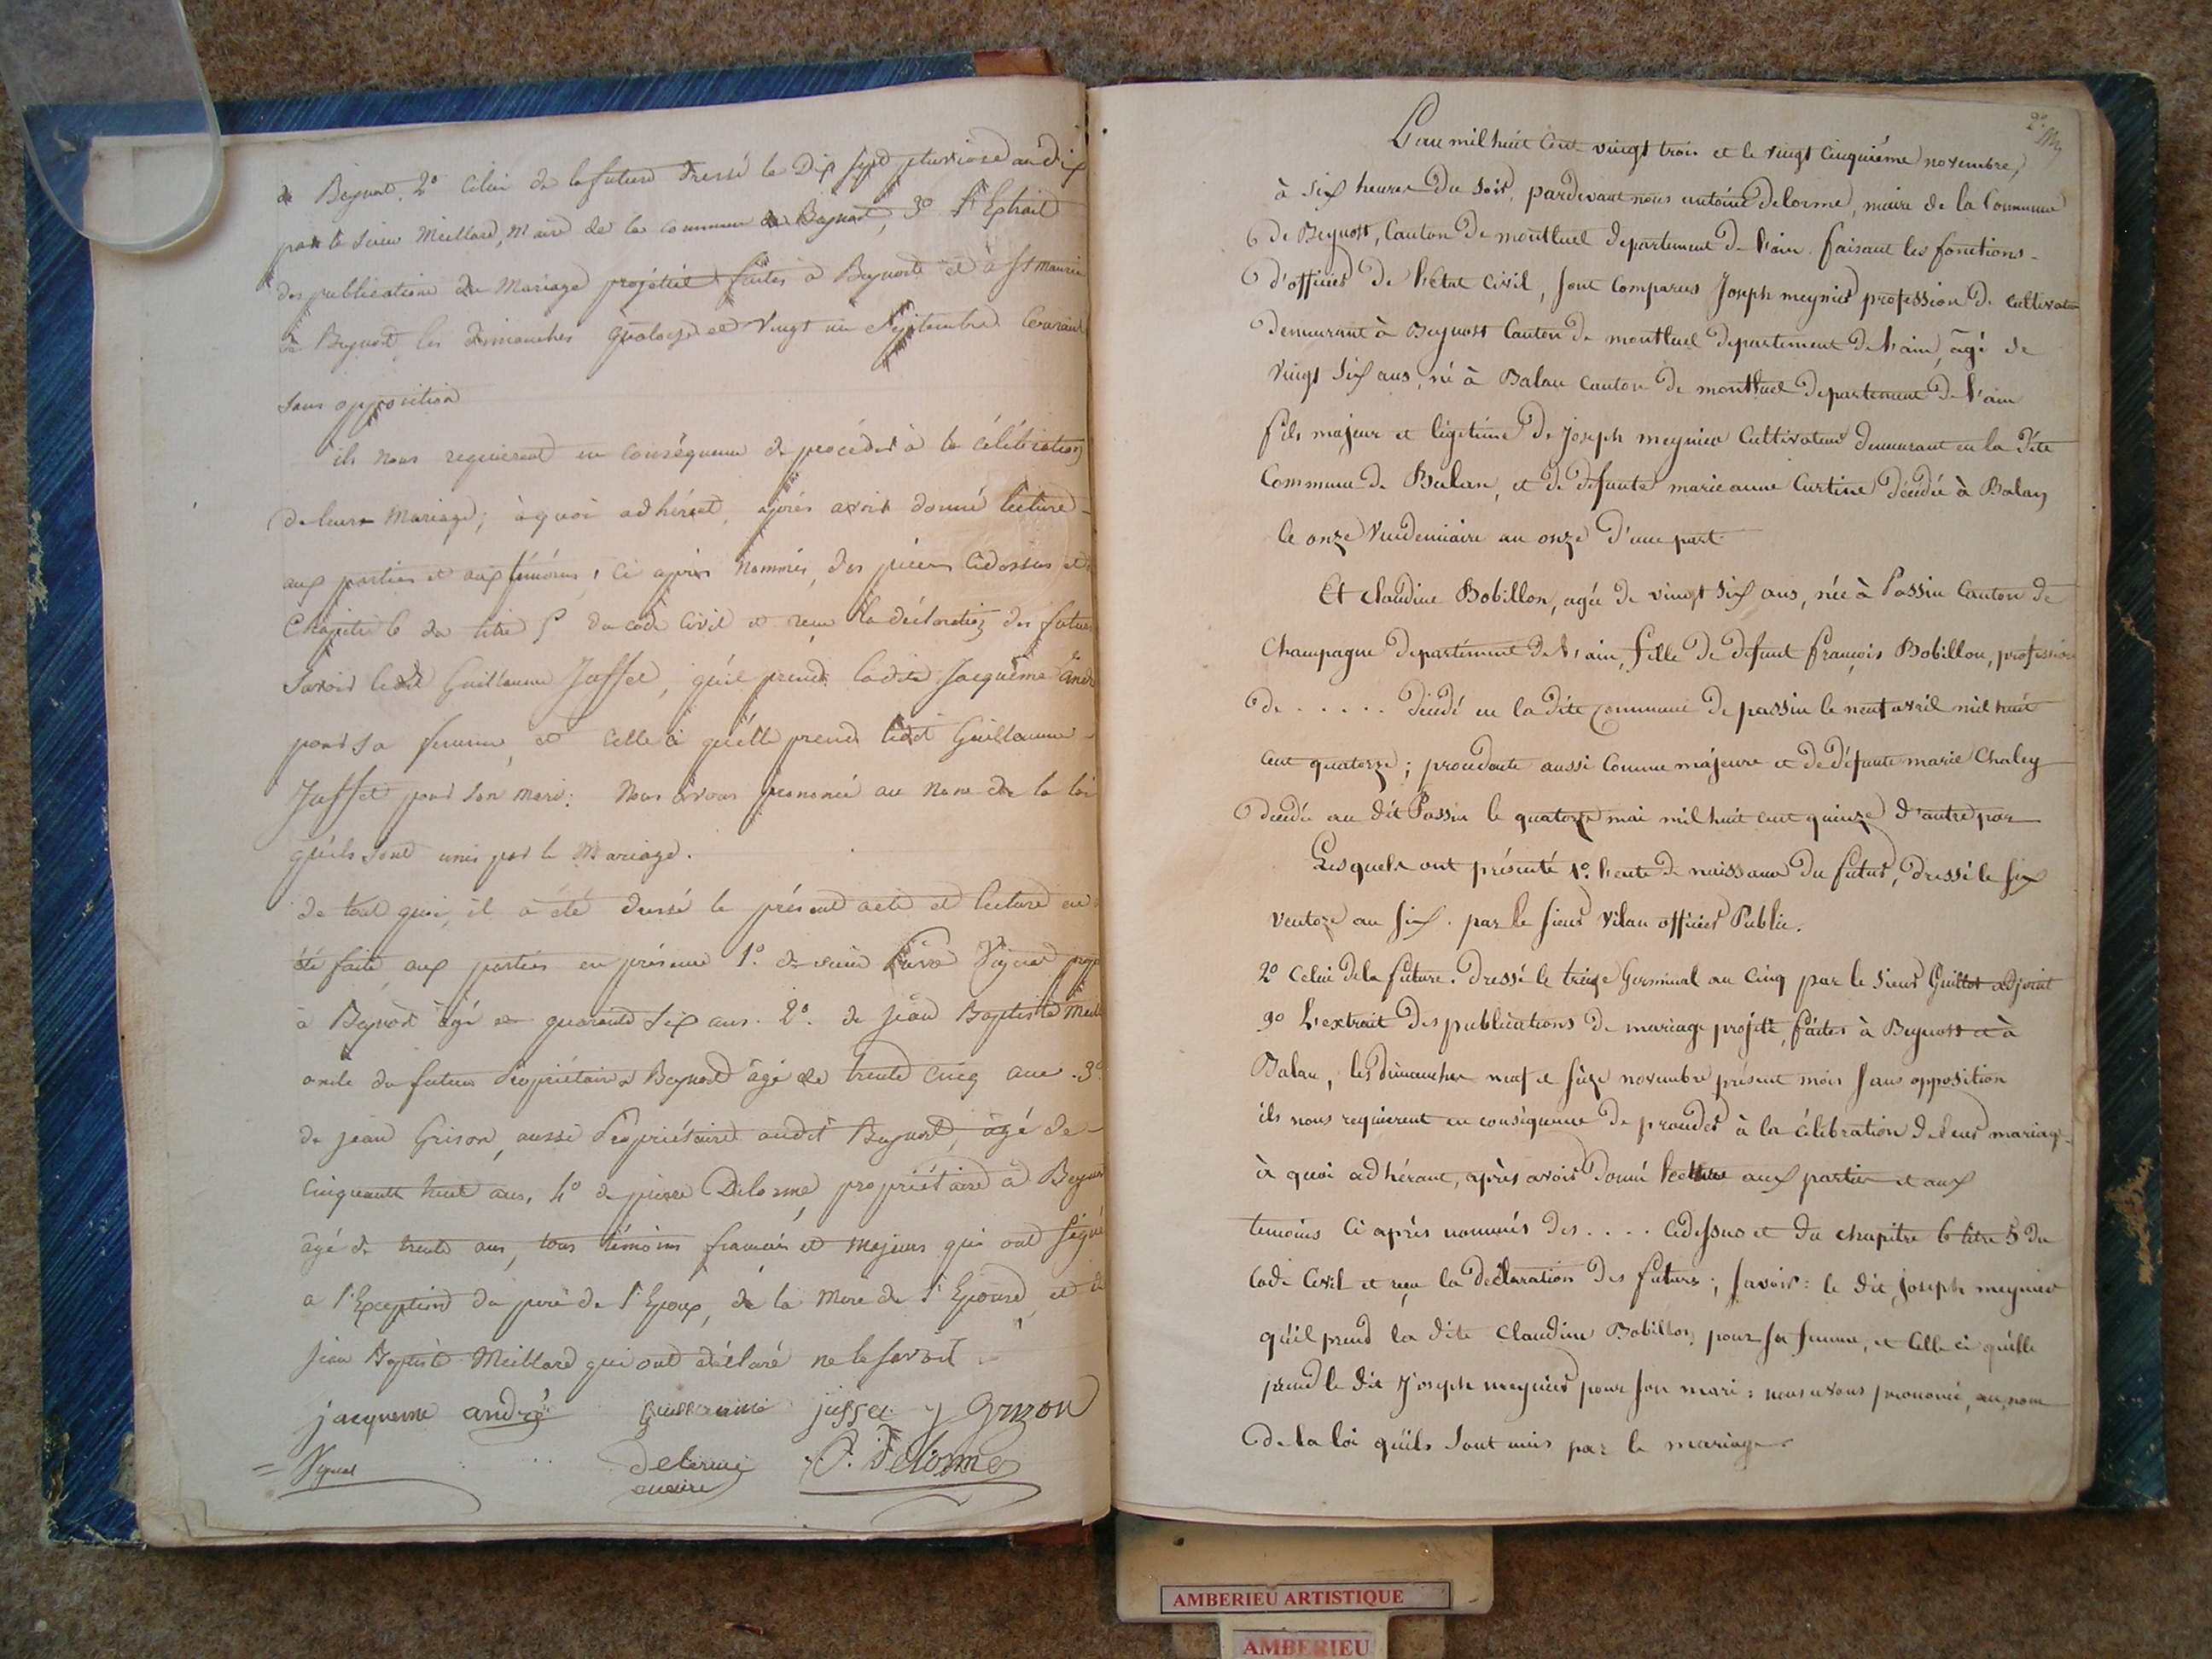 de Beynost, 2° Celui de la future dressé le Dix sept pluviose an dix
par le sieur Meillard, Maire de la commune de Beynost, 3° l'Extrait
des publications du Mariage projétté faites à Beynost et à St Maurice
de Beynost les dimanches quatorze et Vingt un Septembre Courant
sans opposition
ils nous requierent en conséquence de procéder à la célébration
de leur Mariage; à quoi adhérant, après avoir donné lecture
aux parties et aux témoins, ci après Nommés, des pièces Cidessus et
Chapitre 6 du titre 5 du code Civil et reçu la déclaration des futurs
Savoir ledit Guillaume Jusset, qu'il prend ladite Jacquême André
pour sa femme, et Celle ci qu'elle prend ledit Guillaume
Jusset pour son mari: Nous avons prononcé au Nom de la loi
qu'ils sont unis par le Mariage.
de tout quoi, il à été dressé le présent acte et lecture en a
été faite aux parties en présence 1°. de
à Beynost âgé de quarante six ans. 2°. de Jean Baptiste Meill
oncle du futur Propriétaire à Beynost âgé de trente cinq ans. 3°
de jean Grison, aussi Propriétaire audit Beynost, âgé de
cinquante huit ans, 4° de pierre Delorme, propriétaire à Beynost
âgé de trente ans, tous témoins français et majeurs qui ont signé
a l'Exception du pere de l'Epoux, de la Mere de l'Epouse, et de
Jean Baptiste Meillard qui ont déclaré ne le savoir
jacqueme andré guillaume jusset j Grizon
Vignat delorme maire P. Delorme
2e
L'an mil huit Cent vingt trois et le vingt Cinquième novembre,
à Six heures du Soir, pardevant nous antoine Delorme, maire de la Commune
de Beynost, Canton de montluel departement de l'ain faisant les fonctions
d'officier de l'état Civil, sont Comparus Joseph meynier profession de Cultivateur
demeurant à Beynost Canton de montluel departement de l'ain, âgé de
vingt Six ans, né à Balan Canton de montluel departement de l'ain
fils majeur et légitime de Joseph meynier Cultivateur demeurant en la dite
Commune de Balan, et de defunte marie anne Curtine décédée à Balan
le onze Vendemiaire an onze d'une part
Et Claudine Bobillon, agée de vingt six ans, née à Passin Canton de
Champagne departement de l'ain, fille de defunt françois Bobillon, profession
de ..... décédé en la dite Commune de passin le neuf avril mil huit
cent quatorze; procedante aussi Comme majeure et de défunte marie Chaley
décédée au dit Passin le quatorze mai mil huit cent quinze d'autre par
Lesquels ont présenté 1°. l'acte de naissance du futur, dressé le six
ventoze an six. par le sieur Vilan officier Public.
2° Celui de la future. dressé le treize Germinal an Cinq par le Sieur Guillot adjoint
3° L'extrait des publications de mariage projeté, faites à Beynost et à
Balan, les dimanches neuf et seize novembre présent mois sans opposition
ils nous requierent en conséquence de proceder à la célébration de leur mariage
à quoi adhérant, après avoir donné lecture aux parties et aux
temoins ci après nommés des .... cidessus et du chapitre 6 titre 5 du
Code Civil et reçu la declaration des futurs; savoir: le dit Joseph meynier
qu'il prend la dite Claudine Bobillon pour sa femme, et Celle ci qu'elle
prend le dit Joseph meynier pour son mari: nous avons prononcé, au nom
de la loi qu'ils sont unis par le mariage.
AMBERIEU ARTISTIQUE
AMBERIEU